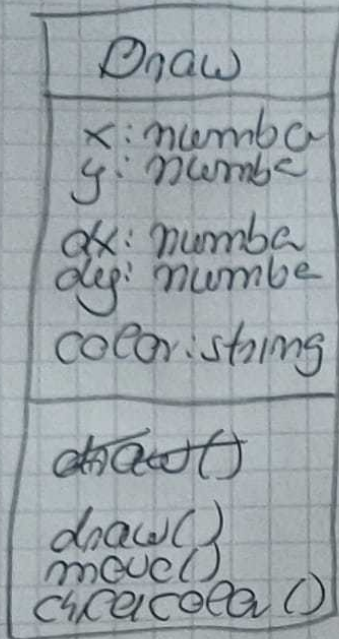 Draw
x: number
y: number
dx: number
dy: number
color: string
draw()
draw()
move()